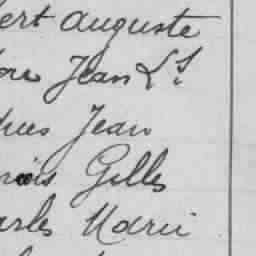 ert Auguste
Jean Ls.
Jean
Gilles
arles Marie